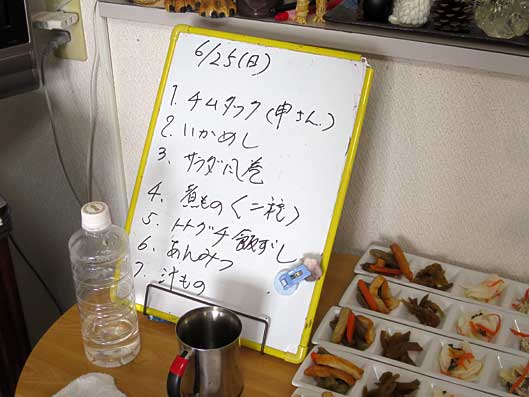 6/25(日)
1. チムタック(申さん)
2. いかめし
3. サラダ巻
4. 煮もの(二種)
5. トトグチ飯ずし
6. あんみつ
7. 汁もの